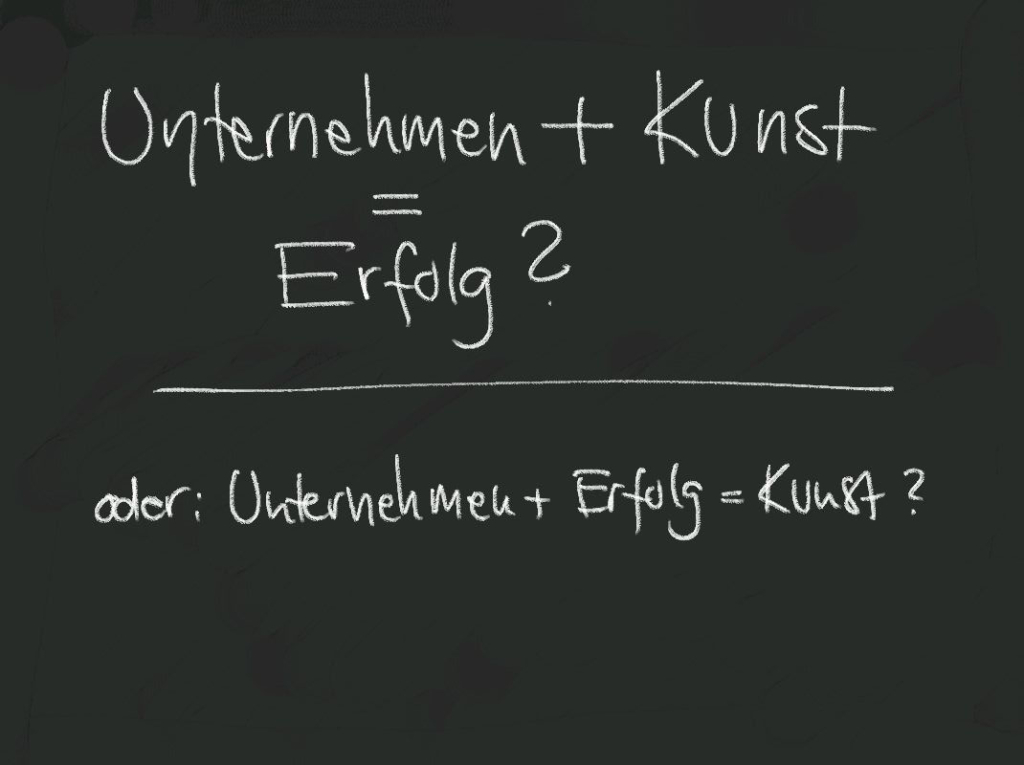 Unternehmen + Kunst
=
Erfolg ?
oder: Unternehmen + Erfolg = Kunst ?